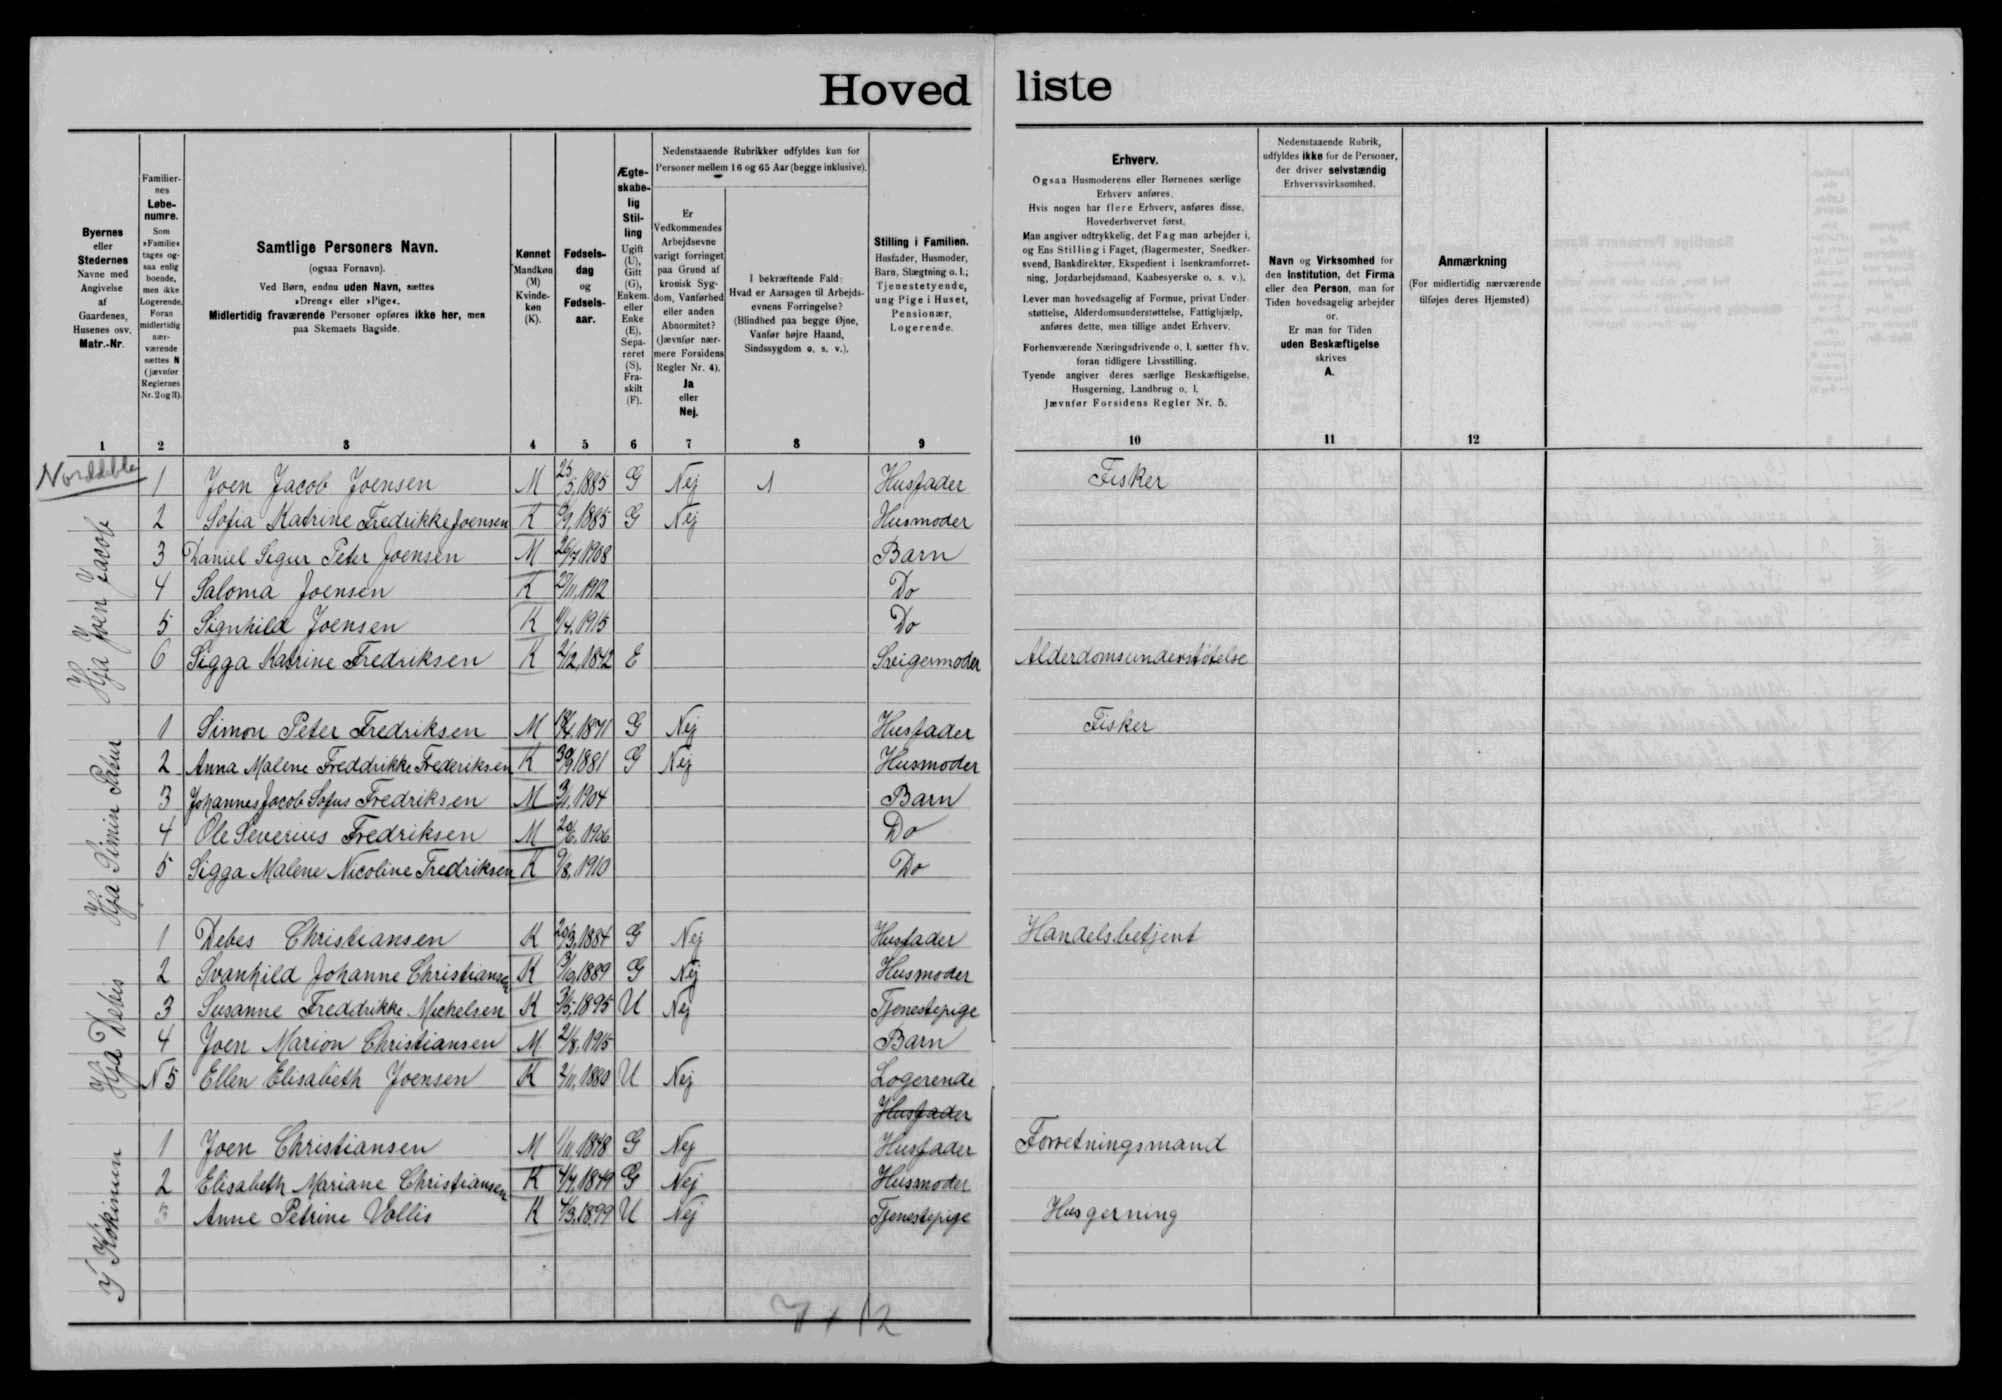 Hovedliste
Byernes eller Stedernes Navne med Angivelse af Gaardenes, Husenes osv. Matr.-Nr.
Familiernes Løbenumre. Som »Familie« tages ogsaa enlig boende, men ikke Logerende. Foran midlertidig nærværende sættes N (jævnfør Reglernes Nr. 2 og 11).
Samtlige Personers Navn.
(ogsaa Fornavn).
Ved Børn, endnu uden Navn, sættes »Dreng« eller »Pige«.
Midlertidig fraværende Personer opføres ikke her, men paa Skemaets Bagside.
Kønnet Mandkøn (M) Kvindekøn (K).
Fødselsdag og Fødselsaar.
Ægteskabelig Stilling Ugift (U), Gift (G), Enkem. eller Enke (E), Separeret (S), Fraskilt (F).
Nedenstaaende Rubrikker udfyldes kun for Personer mellem 16 og 65 Aar (begge inklusive).
Er Vedkommendes Arbejdsevne varigt forringet paa Grund af kronisk Sygdom, Vanførhed eller anden Abnormitet? (Jævnfør nærmere Forsidens Regler Nr. 4). Ja eller Nej.
I bekræftende Fald: Hvad er Aarsagen til Arbejdsevnens Forringelse? (Blindhed paa begge Øjne, Vanfør højre Haand, Sindssygdom o. s. v.).
Stilling i Familien. Husfader, Husmoder, Barn, Slægtning o. l.; Tjenestetyende, ung Pige i Huset, Pensionær, Logerende.
Erhverv.
Ogsaa Husmoderens eller Børnenes særlige Erhverv anføres.
Hvis nogen har flere Erhverv, anføres disse, Hovederhvervet først.
Man angiver udtrykkelig, det Fag man arbejder i, og Ens Stilling i Faget, (Bagermester, Snedkersvend, Bankdirektør, Ekspedient i Isenkramforretning, Jordarbejdsmand, Kaabesyerske o. s. v.).
Lever man hovedsagelig af Formue, privat Understøttelse, Alderdomsunderstøttelse, Fattighjælp, anføres dette, men tillige andet Erhverv.
Forhenværende Næringsdrivende o. l. sætter fhv. foran tidligere Livsstilling.
Tyende angiver deres særlige Beskæftigelse, Husgerning, Landbrug o. l.
Jævnfør Forsidens Regler Nr. 5.
Nedenstaaende Rubrik, udfyldes ikke for de Personer, der driver selvstændig Erhvervsvirksomhed.
Navn og Virksomhed for den Institution, det Firma eller den Person, man for Tiden hovedsagelig arbejder for.
Er man for Tiden uden Beskæftigelse skrives A.
Anmærkning
(For midlertidig nærværende tilføjes deres Hjemsted)
1 2 3 4 5 6 7 8 9 10 11 12
Norddeble
Hja Joen Jacob
1 Joen Jacob Joensen M 25/5, 1885 G Nej 1 Husfader Fisker
2 Sofia Katrine Fredrikke Joensen K 6/9, 1885 G Nej Husmoder
3 Daniel Sigur Peter Joensen M 26/7 1908 Barn
4 Saloma Joensen K 29/11, 1912 Do
5 Signhild Joensen K 11/4, 1915 Do
6 Sigga Katrine Fredriksen K 2/12, 1842 E Svigermoder Alderdomsunderstøtelse
Hja Simin Petur
1 Simon Peter Fredriksen M 18/4. 1871 G Nej Husfader Fisker
2 Anna Malene Freddrikke Frederiksen K 30/9 1881 G Nej Husmoder
3 Johannes Jacob Sofus Fredriksen M 3/1. 1904 Barn
4 Ole Severius Fredriksen M 20/6, 1906 Do
5 Sigga Malene Nicoline Fredriksen K 9/8, 1910 Do
Hja Debis
1 Debes Christiansen K 20/3, 1884 G Nej Husfader Handelsbetjent
2 Svanhild Johanne Christiansen K 3/9, 1889 G Nej Husmoder
3 Susanne Freddrikke Michelsen K 3/5, 1895 U Nej Tjenestepige
4 Joen Marion Christiansen M 21/8, 1915 Barn
N 5 Ellen Elisabeth Joensen K 2/11, 1880 U Nej Logerende
Husfader
Ý Kókinun
1 Joen Christiansen M 1/11, 1848 G Nej Husfader Forretningsmand
2 Elisabeth Mariane Christiansen K 4/7, 1849 G Nej Husmoder
3 Anne Petrine Vollis K 4/3, 1899 U Nej Tjenestepige Husgerning
7 + 12